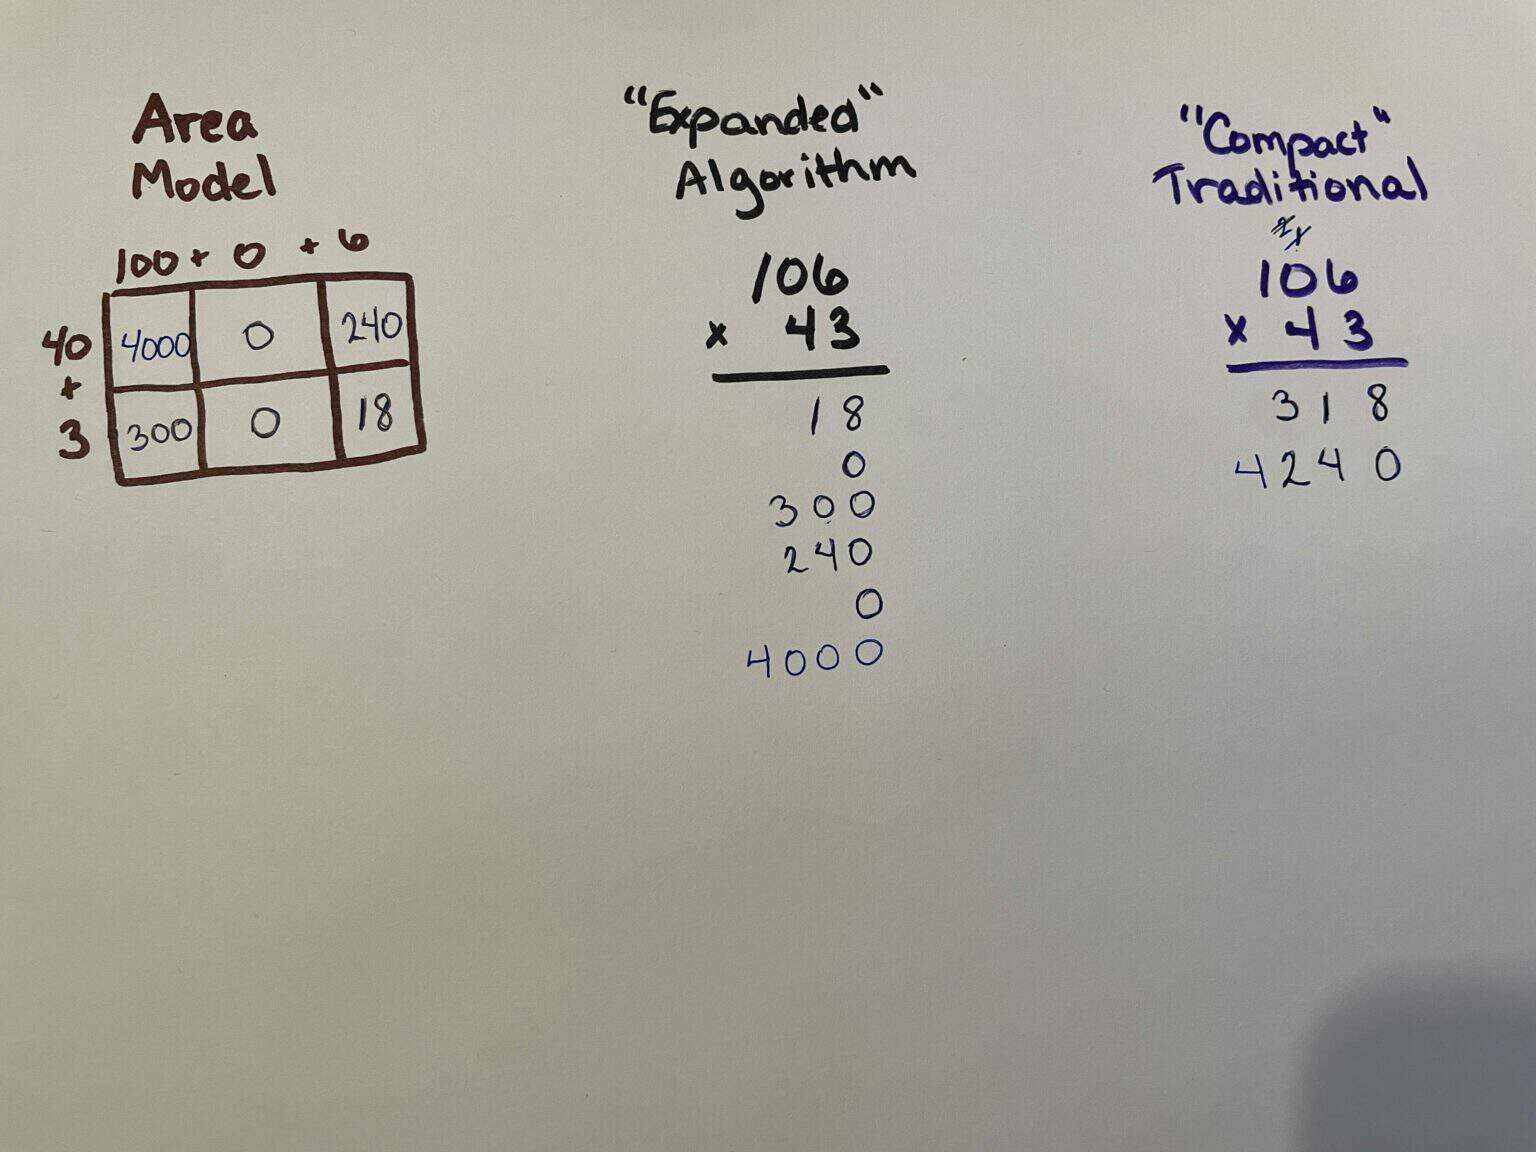 Area
Model
100 + 0 + 6
40 4000 0 240
+
3 300 0 18
"Expanded"
Algorithm
106
x 43
18
0
300
240
0
4000
"Compact"
Traditional
2 1
106
x 43
318
4240